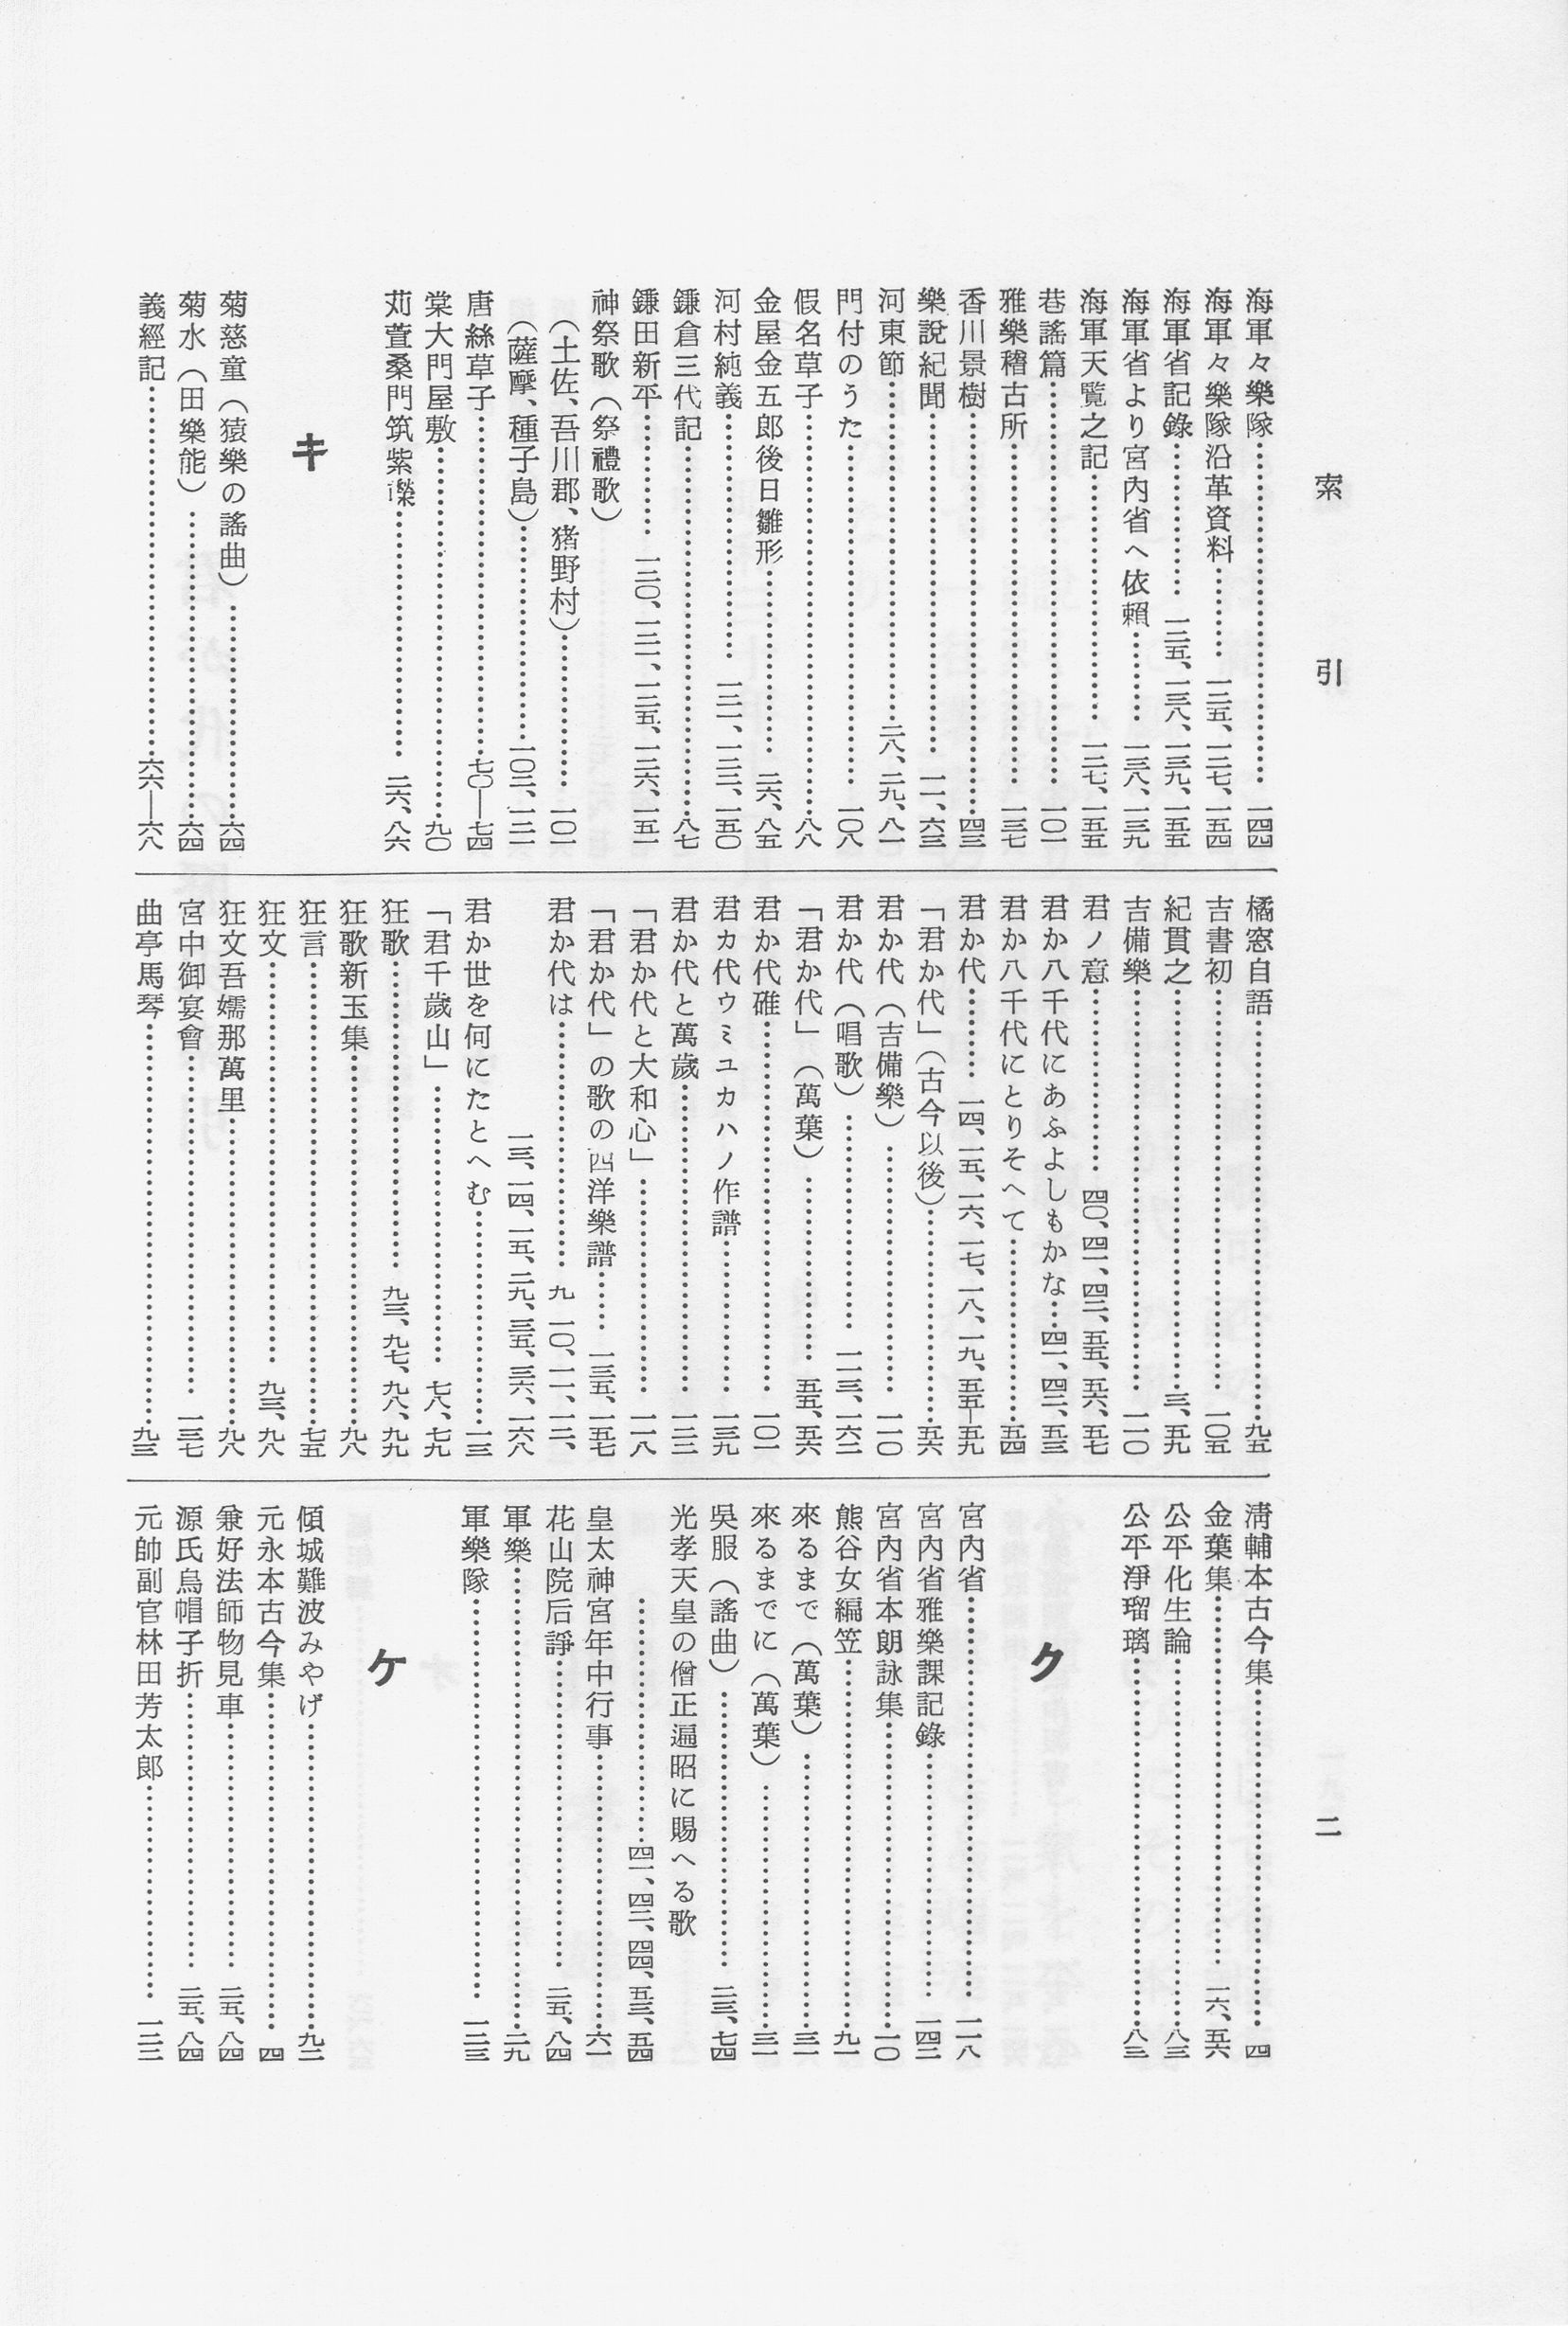 索引
二
海軍々樂隊……一四四
海軍々樂隊沿革資料……一二五、一二七、一五四
海軍省記錄……一二五、一三八、一三九、一五五
海軍省より宮內省へ依賴……一三八、一三九
海軍天覽之記……一二七、一五五
巷謠篇……一〇一
雅樂稽古所……一三七
香川景樹……四三
樂說紀聞……一一、六三
河東節……二八、二九、八一
門付のうた……一〇八
假名草子……八八
金屋金五郎後日雛形……二六、八五
河村純義……一二一、一二二、一五〇
鎌倉三代記……八七
鎌田新平……一二〇、一二一、一二五、一二六、一五一
神祭歌（祭禮歌）
（土佐、吾川郡、猪野村）……一〇一
（薩摩、種子島）……一〇二、一二一
唐絲草子……七〇—七四
棠大門屋敷……九〇
苅萱桑門筑紫𨏍……二六、八六
キ
菊慈童（猿樂の謠曲）……六四
菊水（田樂能）……六四
義經記……六六—六八
橘窓自語……九五
吉書初……一〇五
紀貫之……三、五九
吉備樂……一一〇
君ノ意……四〇、四一、四二、五五、五六、五七
君か八千代にあふよしもかな…四一、四二、五三
君か八千代にとりそへて……五四
君か代……一四、一五、一六、一七、一八、一九、五五—五九
「君か代」（古今以後）……五六
君か代（吉備樂）……一一〇
君か代（唱歌）……一一三、一六二
「君か代」（萬葉）……五五、五六
君か代碓……一〇一
君カ代ウミユカハノ作譜……一三九
君か代と萬歲……一二二
「君か代と大和心」……一一八
「君か代」の歌の西洋樂譜……一三五、一五七
君か代は……九、一〇、一一、一二、
一三、一四、一五、二九、三五、三六、一六八
君か世を何にたとへむ……一三
「君千歲山」……七八、七九
狂歌……九三、九七、九八、九九
狂歌新玉集……九八
狂言……七五
狂文……九三、九八
狂文吾嬬那萬里……九八
宮中御宴會……一三七
曲亭馬琴……九三
淸輔本古今集……四
金葉集……一六、五六
公平化生論……八三
公平淨瑠璃……八三
ク
宮內省……一一八
宮內省雅樂課記錄……一四二
宮內省本朗詠集……一〇
熊谷女編笠……九一
來るまで（萬葉）……三一
來るまでに（萬葉）……三一
吳服（謠曲）……二三、七四
光孝天皇の僧正遍昭に賜へる歌
……四一、四二、四四、五三、五四
皇太神宮年中行事……六一
花山院后諍……二五、八四
軍樂……二九
軍樂隊……一二三
ケ
傾城難波みやげ……九二
元永本古今集……四
兼好法師物見車……二五、八四
源氏烏帽子折……二五、八四
元帥副官林田芳太郎……一二二